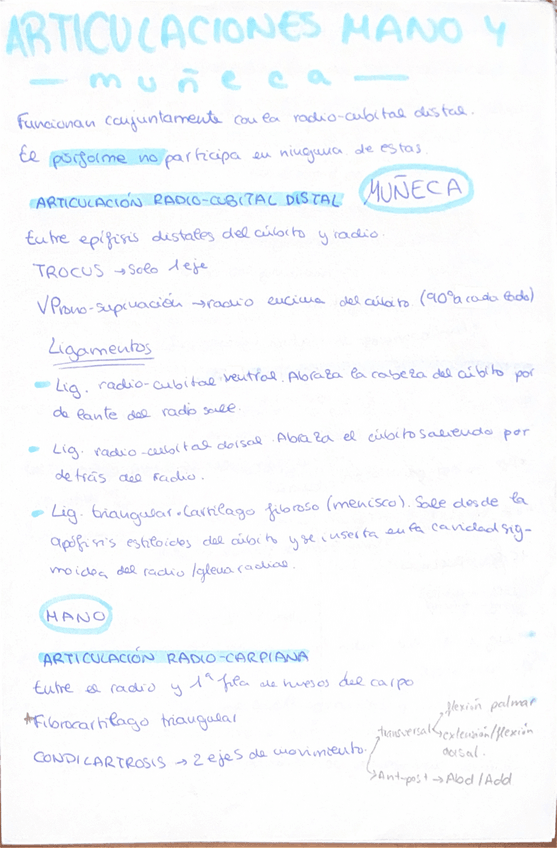 ARTICULACIONES MANO Y
— muñeca —
Funcionan conjuntamente con la radio-cubital distal.
El pisiforme no participa en ninguna de estas.
ARTICULACIÓN RADIO-CUBITAL DISTAL MUÑECA
Entre epífisis distales del cúbito y radio.
TROCUS → Solo 1 eje
Prono-supinación → radio encima del cúbito (90º a cada lado)
Ligamentos
- Lig. radio-cubital ventral. Abraza la cabeza del cúbito por
delante del radio sale.
- Lig. radio-cubital dorsal. Abraza el cúbito saliendo por
detrás del radio.
- Lig. triangular. Cartílago fibroso (menisco). Sale desde la
apófisis estiloides del cúbito y se inserta en la cavidad sig-
moidea del radio/glena radial.
MANO
ARTICULACIÓN RADIO-CARPIANA
Entre el radio y 1ª fila de huesos del carpo
+Fibrocartílago triangular
CONDILARTROSIS → 2 ejes de movimiento.
transversal
flexión palmar
extensión/flexión
dorsal.
Ant-post → Abd/Add